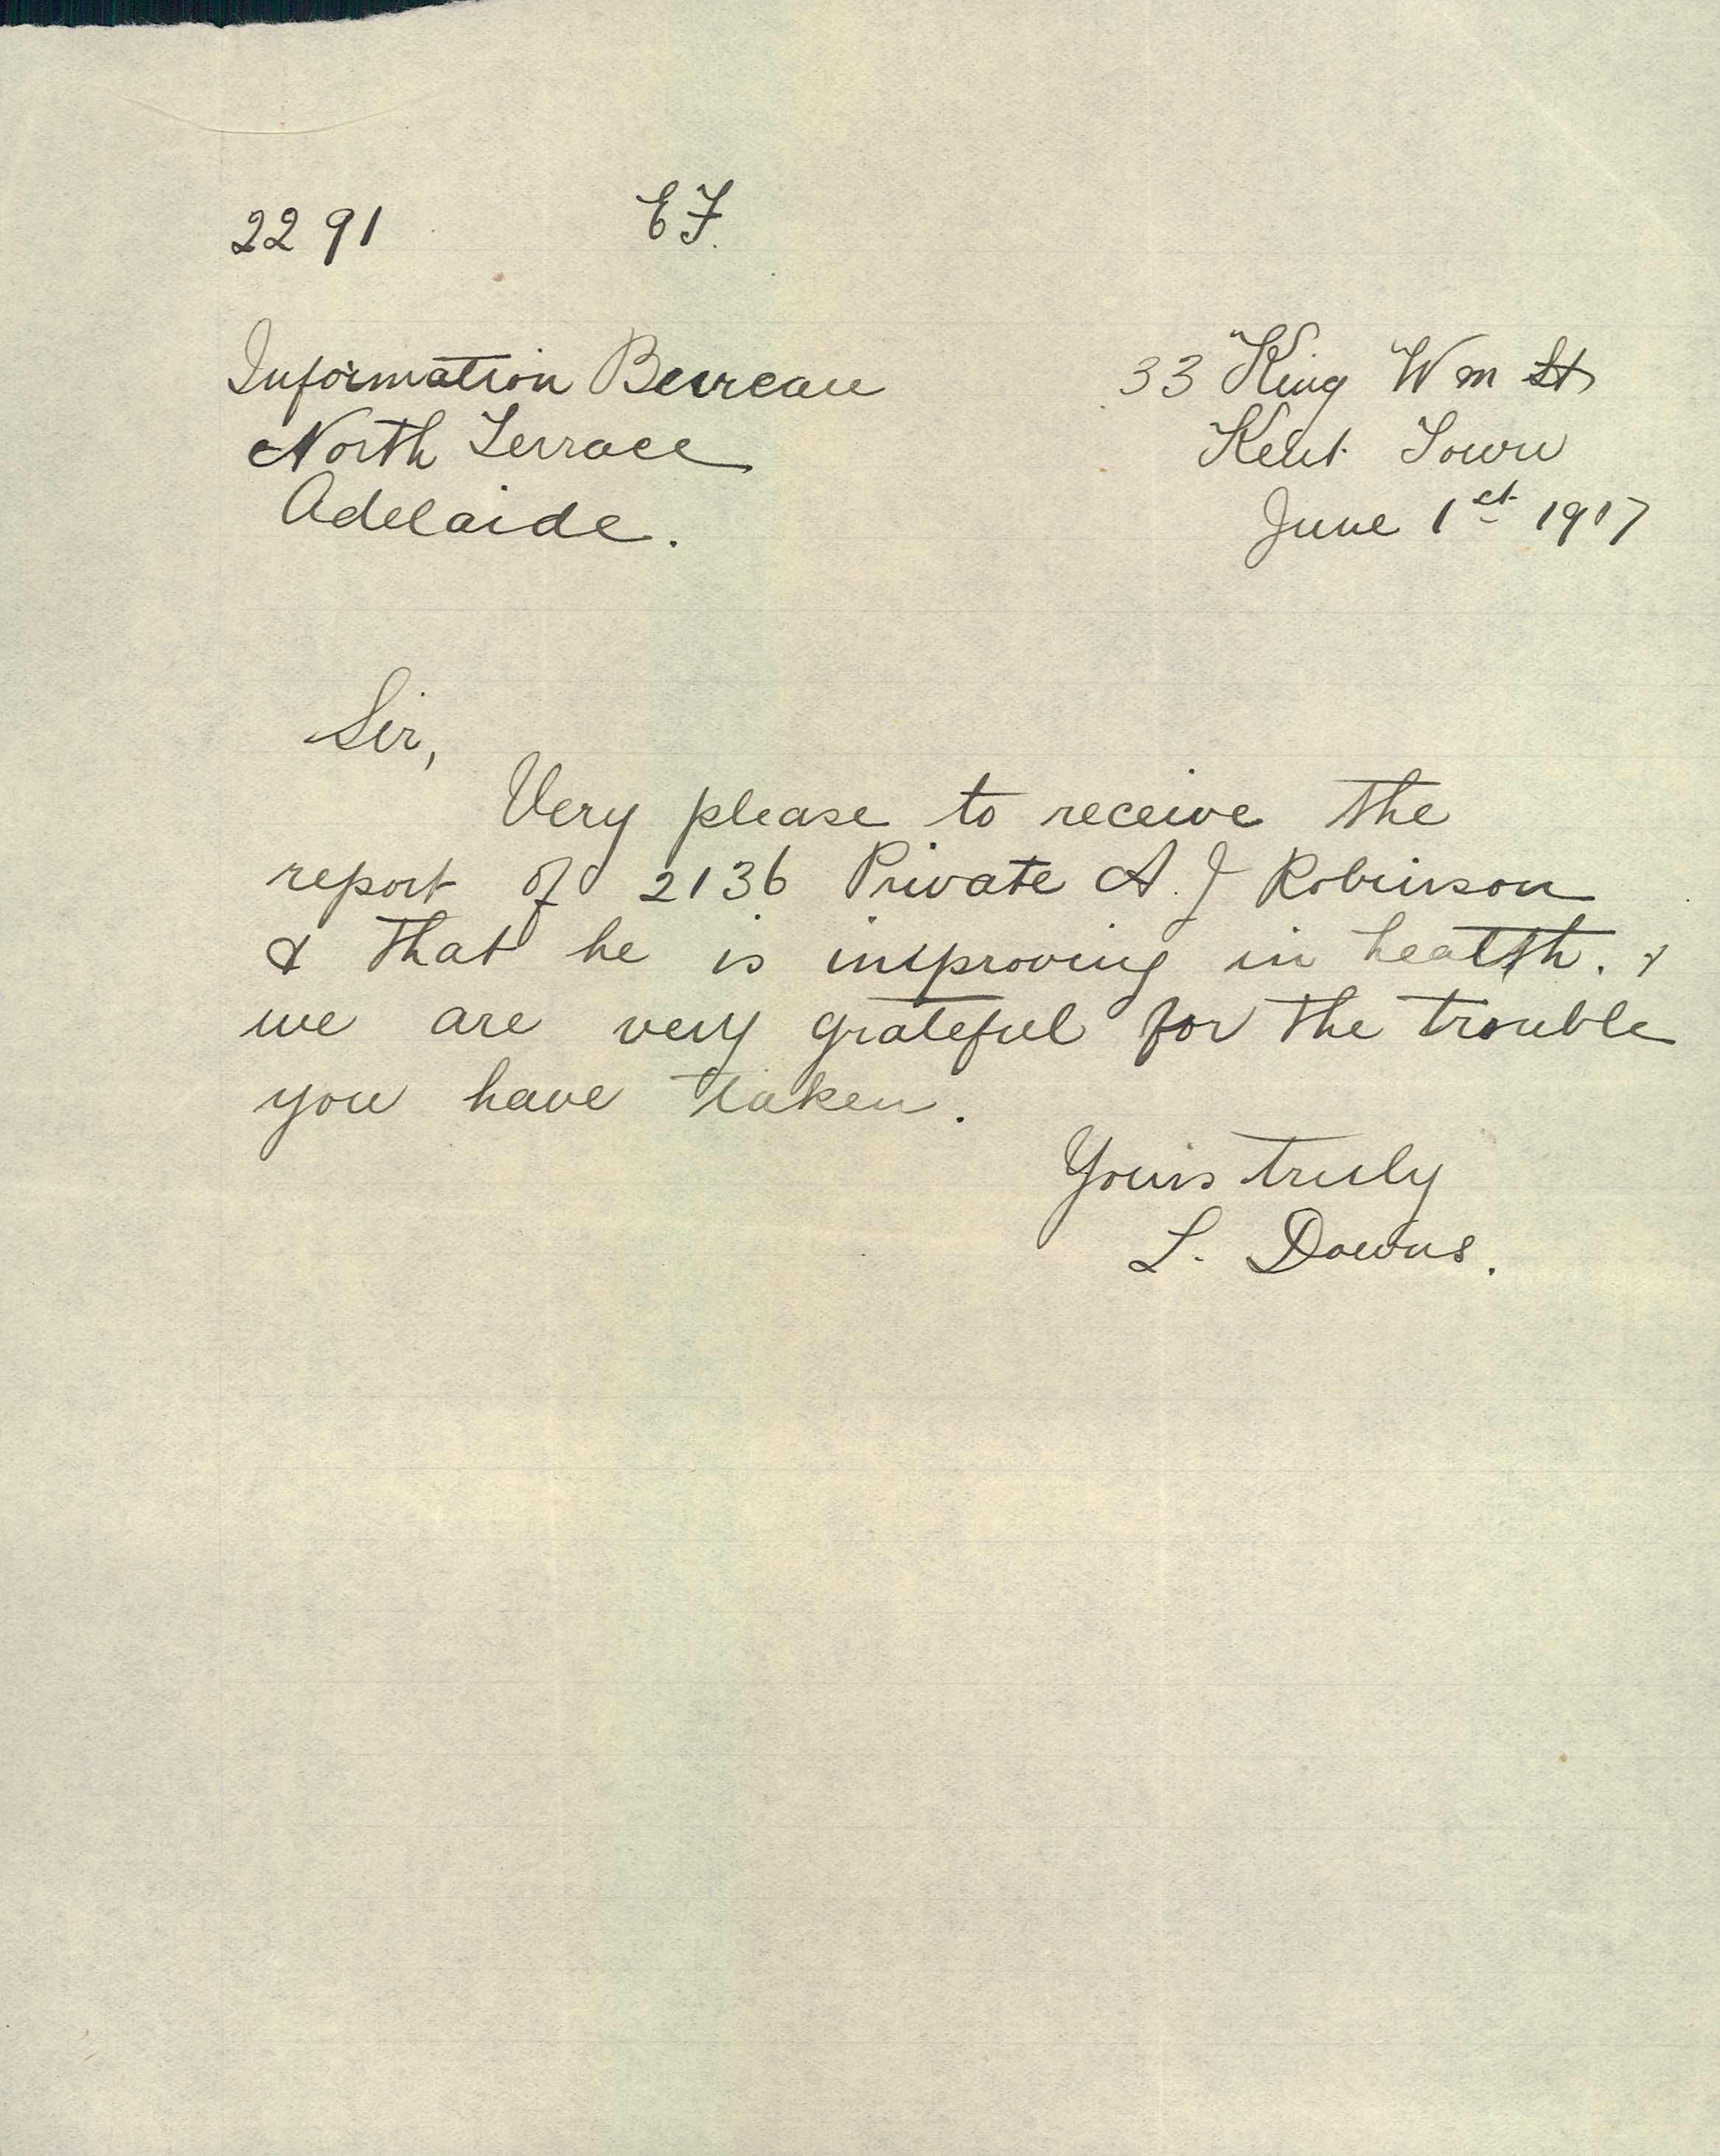 2291 EF.
Information Bureau
North Terrace
Adelaide.
33 King Wm St
Kent Town
June 1st 1917
Sir,
Very please to receive the
report of 2136 Private A. J Robinson
& that he is improving in health. &
we are very grateful for the trouble
you have taken.
Yours truly
L. Downs.